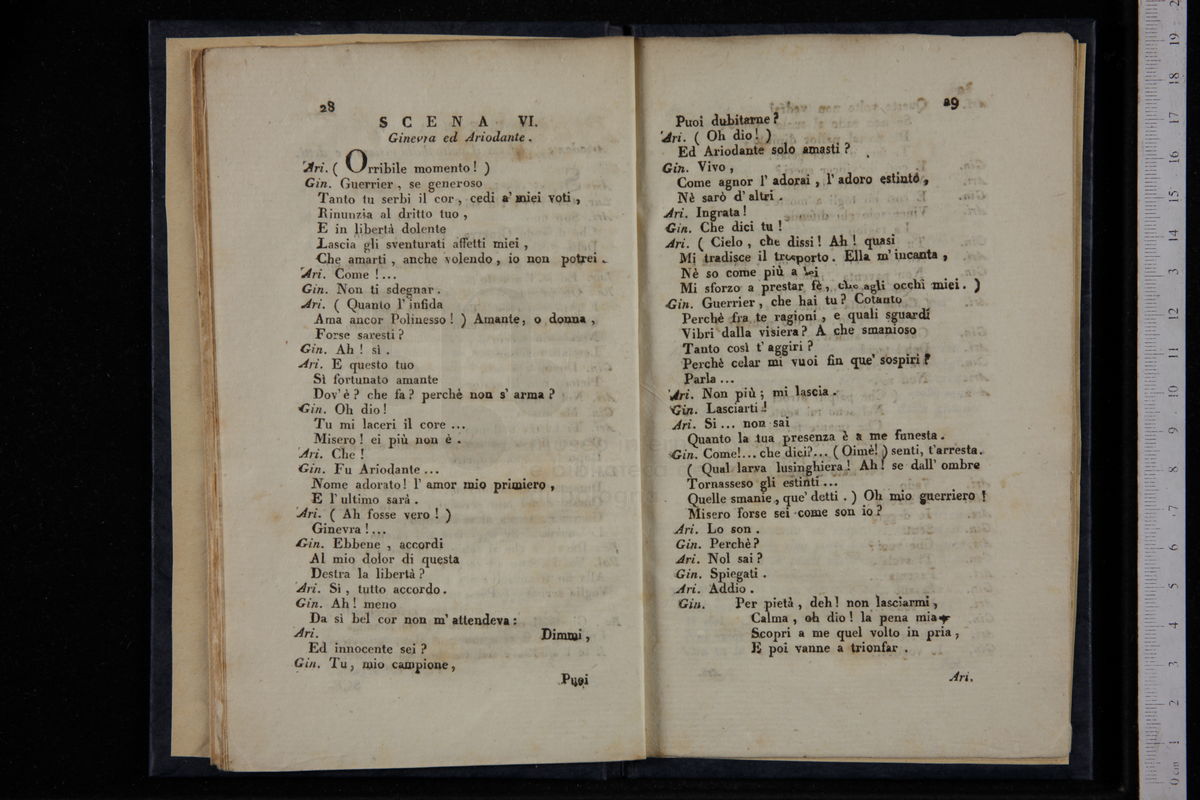 28
SCENA VI.
Ginevra ed Ariodante.
Ari. ( Orribile momento! )
Gin. Guerrier, se generoso
Tanto tu serbi il cor, cedi a' miei voti,
Rinunzia al dritto tuo,
E in libertà dolente
Lascia gli sventurati affetti miei,
Che amarti, anche volendo, io non potrei.
Ari. Come!...
Gin. Non ti sdegnar.
Ari. ( Quanto l'infida
Ama ancor Polinesso! ) Amante, o donna,
Forse saresti?
Gin. Ah! sì.
Ari. E questo tuo
Sì fortunato amante
Dov'è? che fa? perchè non s'arma?
Gin. Oh dio!
Tu mi laceri il core...
Misero! ei più non è.
Ari. Che!
Gin. Fu Ariodante...
Nome adorato! l'amor mio primiero,
E l'ultimo sarà.
Ari. ( Ah fosse vero! )
Ginevra!...
Gin. Ebbene, accordi
Al mio dolor di questa
Destra la libertà?
Ari. Sì, tutto accordo.
Gin. Ah! meno
Da sì bel cor non m'attendeva:
Ari. Dimmi,
Ed innocente sei?
Gin. Tu, mio campione,
Puoi
29
Puoi dubitarne?
Ari. ( Oh dio! )
Ed Ariodante solo amasti?
Gin. Vivo,
Come agnor l'adorai, l'adoro estinto,
Nè sarò d'altri.
Ari. Ingrata!
Gin. Che dici tu!
Ari. ( Cielo, che dissi! Ah! quasi
Mi tradisce il trasporto. Ella m'incanta,
Nè so come più a lei
Mi sforzo a prestar fè, che agli occhi miei. )
Gin. Guerrier, che hai tu? Cotanto
Perchè fra te ragioni, e quali sguardi
Vibri dalla visiera? A che smanioso
Tanto così t'aggiri?
Perchè celar mi vuoi fin que' sospiri?
Parla...
Ari. Non più; mi lascia.
Gin. Lasciarti!
Ari. Si... non sai
Quanto la tua presenza è a me funesta.
Gin. Come!... che dici?... ( Oimè! ) senti, t'arresta.
( Qual larva lusinghiera! Ah! se dall'ombre
Tornasseso gli estinti...
Quelle smanie, que' detti. ) Oh mio guerriero!
Misero forse sei come son io?
Ari. Lo son.
Gin. Perchè?
Ari. Nol sai?
Gin. Spiegati.
Ari. Addio.
Gin. Per pietà, deh! non lasciarmi,
Calma, oh dio! la pena mia
Scopri a me quel volto in pria,
E poi vanne a trionfar.
Ari.